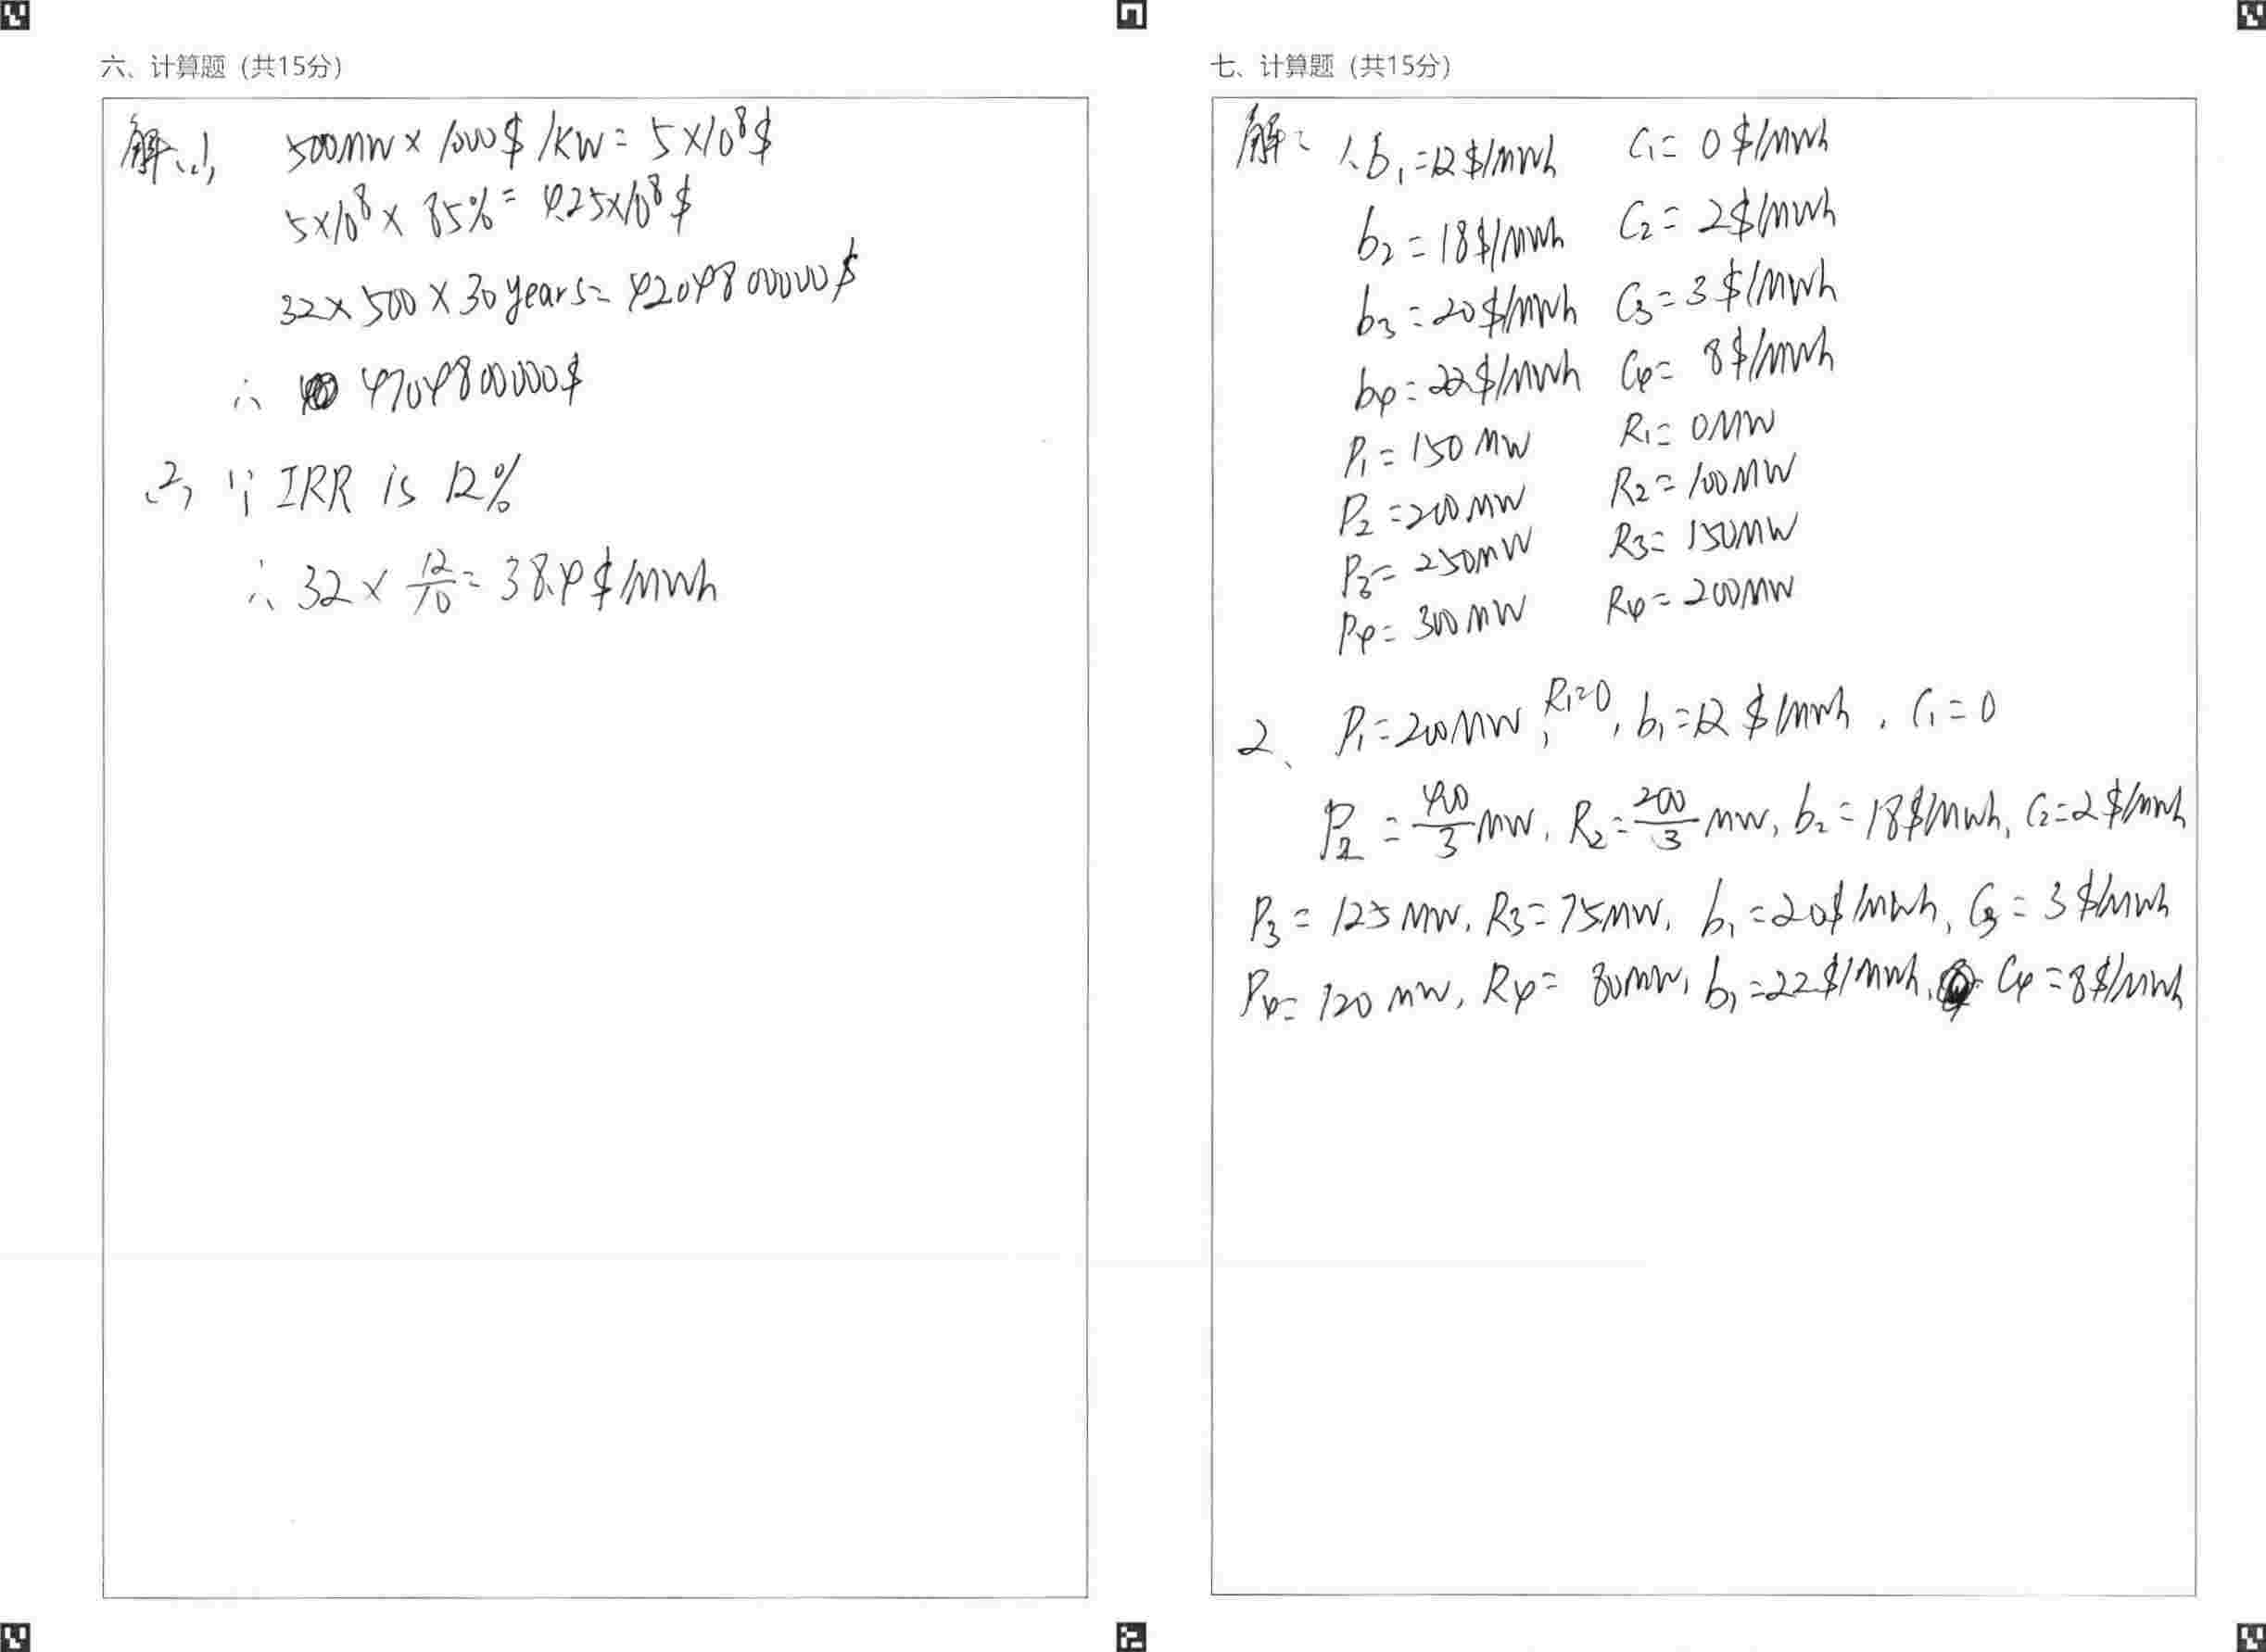 六、计算题（共15分）
解：(1) 500MW × 1000$/KW = 5×10⁸$
5×10⁸ × 85% = 4.25×10⁸$
32×500×30years = 4204800000$
∴ 4704800000$
(2) ∵ IRR is 12%
∴ 32 × 12/10 = 38.4$/MWh
七、计算题（共15分）
解：1、b₁=12$/MWh C₁=0$/MWh
b₂=18$/MWh C₂=2$/MWh
b₃=20$/MWh C₃=3$/MWh
b₄=22$/MWh C₄=8$/MWh
P₁=150MW R₁=0MW
P₂=200MW R₂=100MW
P₃=250MW R₃=150MW
P₄=300MW R₄=200MW
2、P₁=200MW, R₁=0, b₁=12$/MWh, C₁=0
P₂=400/3MW, R₂=200/3MW, b₂=18$/MWh, C₂=2$/MWh
P₃=125MW, R₃=75MW, b₁=20$/MWh, C₃=3$/MWh
P₄=120MW, R₄=80MW, b₁=22$/MWh, C₄=8$/MWh